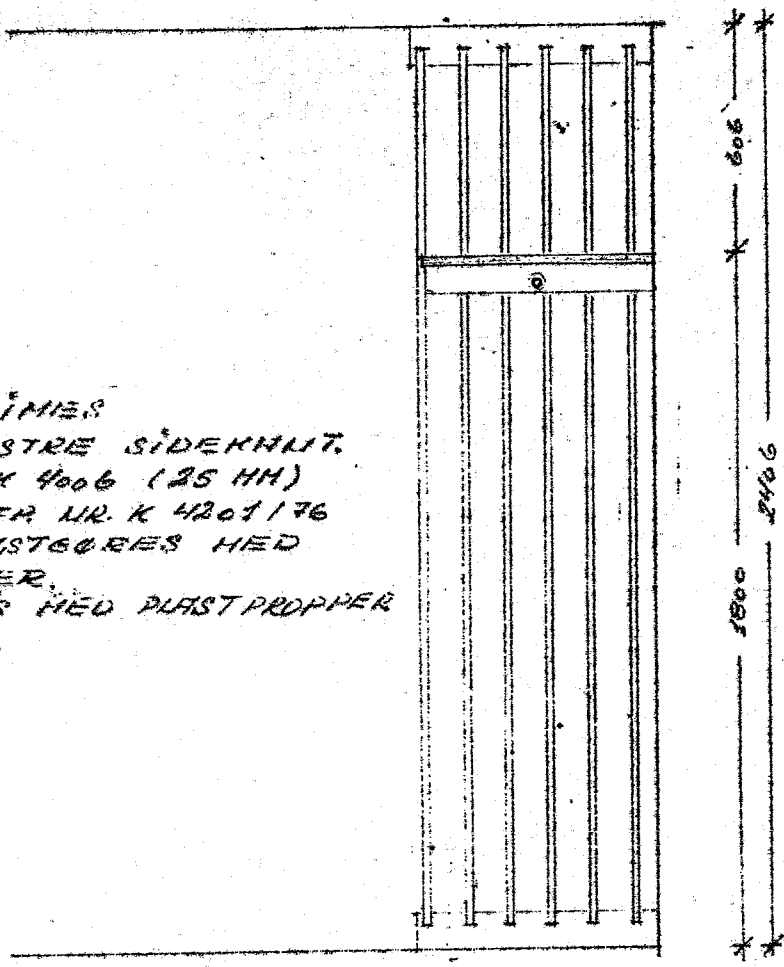 LIMES
STRE SIDEKANT.
K 4006 (25 MM)
FR. NR. K 4201/76
STGØRES MED
ER.
S MED PLASTPROPPER
606
1800
2406